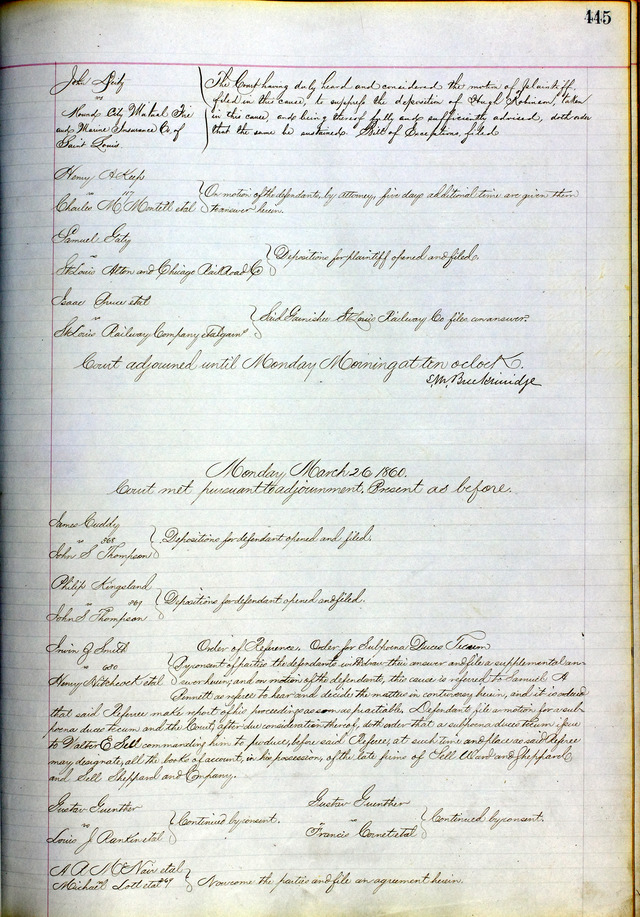 445
John
vs
Mound City Mutual Fire
and Marine Insurance Co of
Saint Louis
The Court having duly heard and considered the motion of plaintiff
filed in this cause, to suppress the deposition of Hugh Robinson, taken
in this cause, and being thereof fully and sufficiently advised, doth order
that the same be sustained. Bill of Exceptions filed
Henry A Keep
vs 117
Charles M Montell etal
On motion of the defendants, by attorney, five days additional time are given them
to answer herein.
Samuel Gaty
vs
St Louis Alton and Chicago Rail Road Co
Depositions for plaintiff opened and filed.
Isaac etal
vs
St Louis Railway Company
Said Garnishee St Louis Railway Co files an answer.
Court adjourned until Monday Morning at ten oclock.
S.M. Breckinridge
Monday March 26 1860.
Court met pursuant to adjournment. Present as before.
James Cuddy
vs 368
John S Thompson
Depositions for defendant opened and filed.
Philip Kingsland
vs 369
John S Thompson
Depositions for defendant opened and filed.
Irwin Z Smith
vs 630
Henry Hitchcock etal
Order of Reference. Order for Subpoena Duces Tecum
By consent of parties the defendants withdraw their answer and file a supplemental an-
swer herein, and on motion of the defendants, this cause is referred to Samuel A
Bennett as referee to hear and decide the matters in controversy herein, and it is ordered
that said Referee make report of his proceedings as soon as practicable. Defendants file a motion for a sub-
poena duces tecum and the Court, after due consideration thereof, doth order that a subpoena duces tecum issue
to Walter E. Sell commanding him to produce, before said Referee, at such time and place as said Referee
may designate, all the books of account, in his possession, of the late firms of Sell Ward and Sheppard
and Sell Sheppard and Company.
Gustav Guenther
vs
Louis J Rankin etal
Continued by consent.
Gustav Guenther
vs
Francis Cornet etal
Continued by consent.
A A McNair etal
Michael Lott etal
Now come the parties and file an agreement herein.